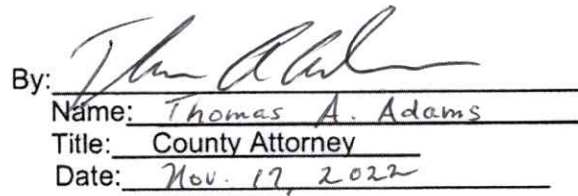 By:
Name: Thomas A. Adams
Title: County Attorney
Date: Nov. 17, 2022